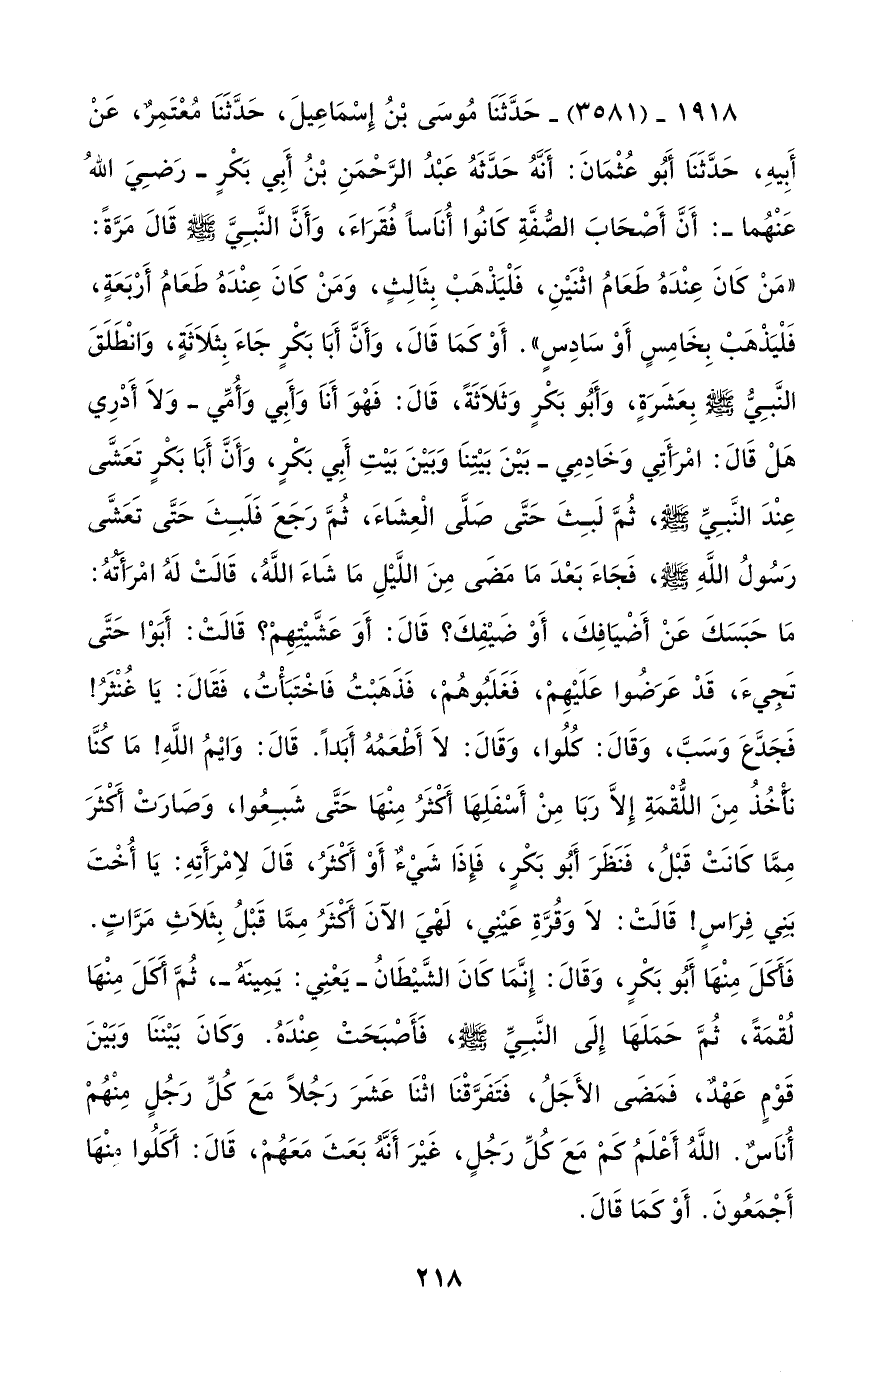 ١٩١٨ ـ (٣٥٨١) ـ حَدَّثَنَا مُوسَى بْنُ إِسْمَاعِيلَ، حَدَّثَنَا مُعْتَمِرٌ، عَنْ
أَبِيهِ، حَدَّثَنَا أَبُو عُثْمَانَ: أَنَّهُ حَدَّثَهُ عَبْدُ الرَّحْمَنِ بْنُ أَبِي بَكْرٍ ـ رَضِيَ اللهُ
عَنْهُما ـ: أَنَّ أَصْحَابَ الصُّفَّةِ كَانُوا أُنَاساً فُقَرَاءَ، وَأَنَّ النَّبِيَّ ﷺ قَالَ مَرَّةً:
«مَنْ كَانَ عِنْدَهُ طَعَامُ اثْنَيْنِ، فَلْيَذْهَبْ بِثَالِثٍ، وَمَنْ كَانَ عِنْدَهُ طَعَامُ أَرْبَعَةٍ،
فَلْيَذْهَبْ بِخَامِسٍ أَوْ سَادِسٍ». أَوْ كَمَا قَالَ، وَأَنَّ أَبَا بَكْرٍ جَاءَ بِثَلَاثَةٍ، وَانْطَلَقَ
النَّبِيُّ ﷺ بِعَشَرَةٍ، وَأَبُو بَكْرٍ وَثَلَاثَةً، قَالَ: فَهْوَ أَنَا وَأَبِي وَأُمِّي ـ وَلاَ أَدْرِي
هَلْ قَالَ: امْرَأَتِي وَخَادِمِي ـ بَيْنَ بَيْتِنَا وَبَيْنَ بَيْتِ أَبِي بَكْرٍ، وَأَنَّ أَبَا بَكْرٍ تَعَشَّى
عِنْدَ النَّبِيِّ ﷺ، ثُمَّ لَبِثَ حَتَّى صَلَّى الْعِشَاءَ، ثُمَّ رَجَعَ فَلَبِثَ حَتَّى تَعَشَّى
رَسُولُ اللَّهِ ﷺ، فَجَاءَ بَعْدَ مَا مَضَى مِنَ اللَّيْلِ مَا شَاءَ اللَّهُ، قَالَتْ لَهُ امْرَأَتُهُ:
مَا حَبَسَكَ عَنْ أَضْيَافِكَ، أَوْ ضَيْفِكَ؟ قَالَ: أَوَ عَشَّيْتِهِمْ؟ قَالَتْ: أَبَوْا حَتَّى
تَجِيءَ، قَدْ عَرَضُوا عَلَيْهِمْ، فَغَلَبُوهُمْ، فَذَهَبْتُ فَاخْتَبَأْتُ، فَقَالَ: يَا غُنْثَرُ!
فَجَدَّعَ وَسَبَّ، وَقَالَ: كُلُوا، وَقَالَ: لاَ أَطْعَمُهُ أَبَداً. قَالَ: وَايْمُ اللَّهِ! مَا كُنَّا
نَأْخُذُ مِنَ اللُّقْمَةِ إِلاَّ رَبَا مِنْ أَسْفَلِهَا أَكْثَرُ مِنْهَا حَتَّى شَبِعُوا، وَصَارَتْ أَكْثَرَ
مِمَّا كَانَتْ قَبْلُ، فَنَظَرَ أَبُو بَكْرٍ، فَإِذَا شَيْءٌ أَوْ أَكْثَرُ، قَالَ لاِمْرَأَتِهِ: يَا أُخْتَ
بَنِي فِرَاسٍ! قَالَتْ: لاَ وَقُرَّةِ عَيْنِي، لَهْيَ الآنَ أَكْثَرُ مِمَّا قَبْلُ بِثَلَاثِ مَرَّاتٍ.
فَأَكَلَ مِنْهَا أَبُو بَكْرٍ، وَقَالَ: إِنَّمَا كَانَ الشَّيْطَانُ ـ يَعْنِي: يَمِينَهُ ـ، ثُمَّ أَكَلَ مِنْهَا
لُقْمَةً، ثُمَّ حَمَلَهَا إِلَى النَّبِيِّ ﷺ، فَأَصْبَحَتْ عِنْدَهُ. وَكَانَ بَيْنَنَا وَبَيْنَ
قَوْمٍ عَهْدٌ، فَمَضَى الأَجَلُ، فَتَفَرَّقْنَا اثْنَا عَشَرَ رَجُلاً مَعَ كُلِّ رَجُلٍ مِنْهُمْ
أُنَاسٌ. اللَّهُ أَعْلَمُ كَمْ مَعَ كُلِّ رَجُلٍ، غَيْرَ أَنَّهُ بَعَثَ مَعَهُمْ، قَالَ: أَكَلُوا مِنْهَا
أَجْمَعُونَ. أَوْ كَمَا قَالَ.
٢١٨